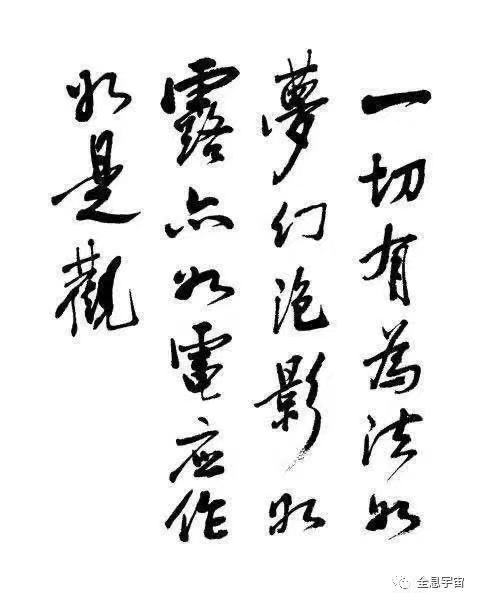 一切有為法如
夢幻泡影如
露亦如電应作
如是觀
全息宇宙